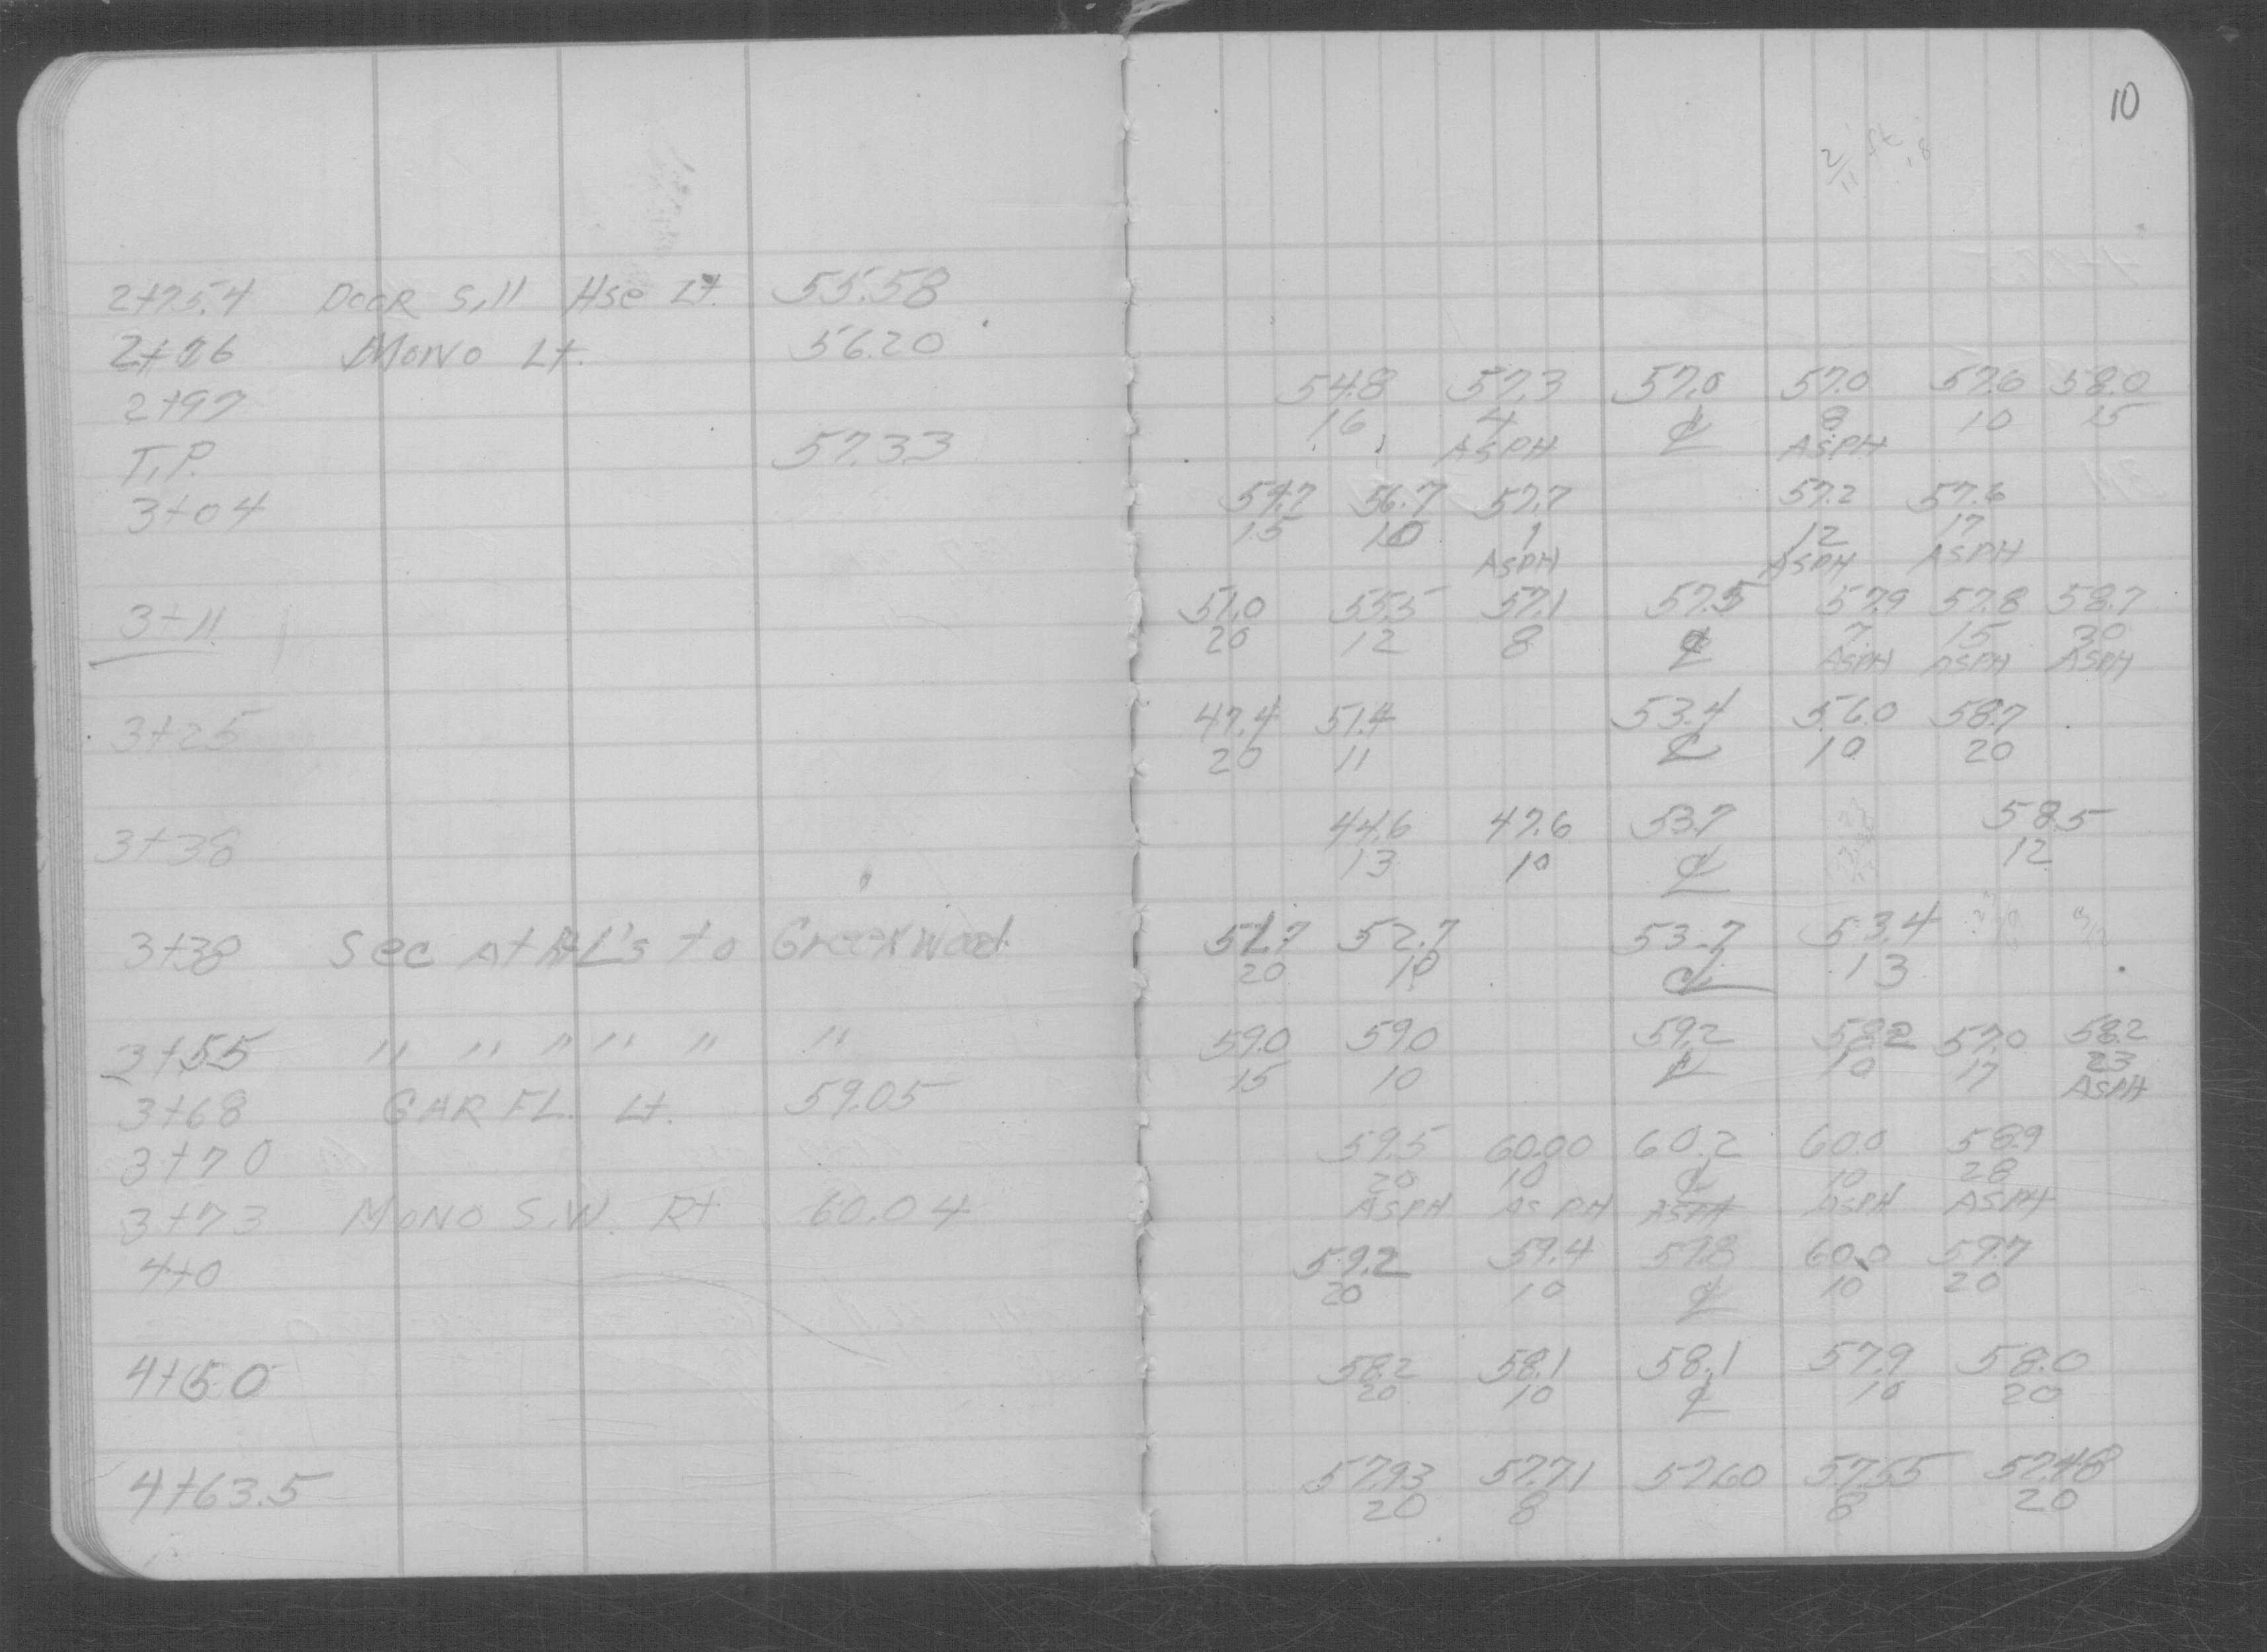 10
2+75.4 Door Sill Hse Lt. 55.58
2+76 Mono Lt. 56.20
2+97
54.8 57.3 57.0 57.0 57.6 58.0
16 4 ℄ 8 10 15
ASPH ASPH
T.P. 57.33
3+04
54.7 56.7 57.7 57.2 57.6
15 10 1 12 17
ASPH ASPH ASPH
3+11
51.0 55.5 57.1 57.5 57.9 57.8 58.7
20 12 8 ℄ 7 15 30
ASPH ASPH ASPH
3+25
47.4 51.4 53.4 56.0 58.7
20 11 ℄ 10 20
3+38
44.6 47.6 53.7 58.5
13 10 ℄ 12
3+38 Sec At Rt L's to Greenwood
51.7 52.7 53.7 53.4
20 10 ℄ 13
3+55 " " " " " "
59.0 59.0 59.2 58.2 57.0 58.2
15 10 ℄ 10 17 23
ASPH
3+68 GAR FL. Lt. 59.05
3+70
59.5 60.00 60.2 60.0 58.9
20 10 ℄ 10 28
ASPH ASPH ASPH ASPH ASPH
3+73 MONO S.W. Rt 60.04
4+0
59.2 59.4 59.8 60.0 59.7
20 10 ℄ 10 20
4+50
58.2 58.1 58.1 57.9 58.0
20 10 ℄ 10 20
4+63.5
57.93 57.71 57.60 57.55 57.48
20 8 8 20